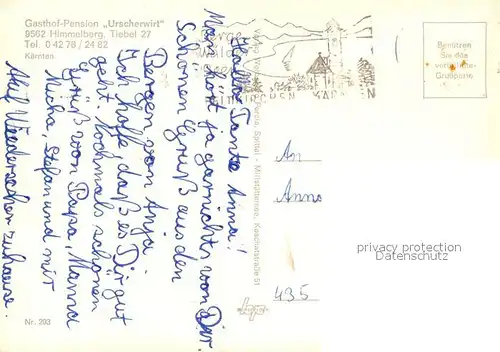 Gasthof-Pension „Urscherwirt"
9562 Himmelberg, Tiebel 27
Tel. 0 42 76 / 24 82
Kärnten
Hallo Tante Anna!
Man hört ja garnichts von Dir.
Schönen Gruß aus den
Bergen von Anja
Ich hoffe, daß es Dir gut
geht. Nochmals schönen
Gruß von Papa, Mama
Micha, Stefan und mir
Auf Wiedersehen zuhause.
Nr. 293
Berge
Wälder
Seen
KÄRNTEN
Spittal - Millstättersee, Koschatstraße 51
Benützen
Sie die
Postleitzahl
An
Anna
435
privacy protection
Datenschutz